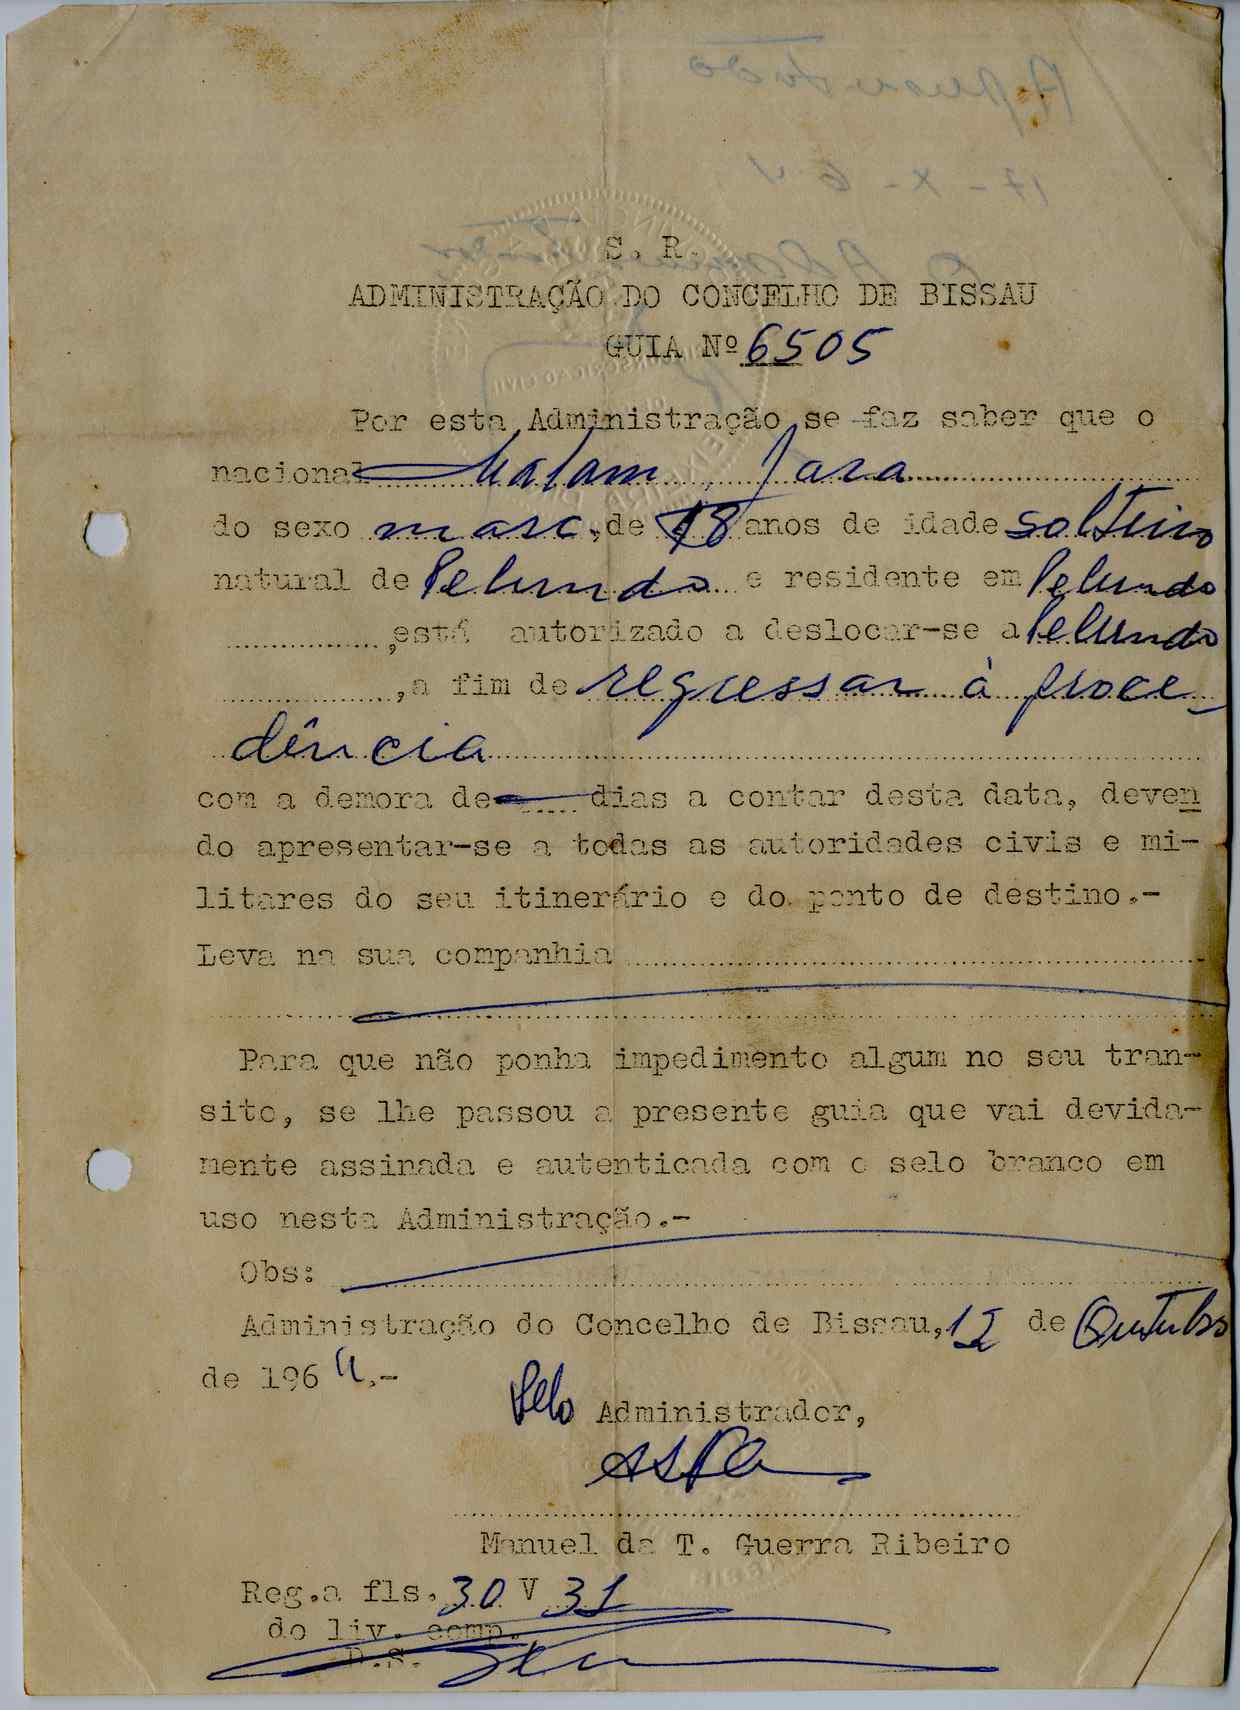 S. R.
ADMINISTRAÇÃO DO CONCELHO DE BISSAU
GUIA Nº 6505
Por esta Administração se faz saber que o
nacional Malam Jara
do sexo masc., de 18 anos de idade solteiro
natural de Pelundo e residente em Pelundo
, está autorizado a deslocar-se a Pelundo
, a fim de regressar à proce-
dência
com a demora de dias a contar desta data, deven
do apresentar-se a todas as autoridades civis e mi-
litares do seu itinerário e do ponto de destino.-
Leva na sua companhia
Para que não ponha impedimento algum no seu tran-
sito, se lhe passou a presente guia que vai devida-
mente assinada e autenticada com o selo branco em
uso nesta Administração.-
Obs:
Administração do Concelho de Bissau, 12 de Outubro
de 1964.-
Pelo Administrador,
Manuel da T. Guerra Ribeiro
Reg.a fls. 30 V 31
do liv. comp.
D.S.